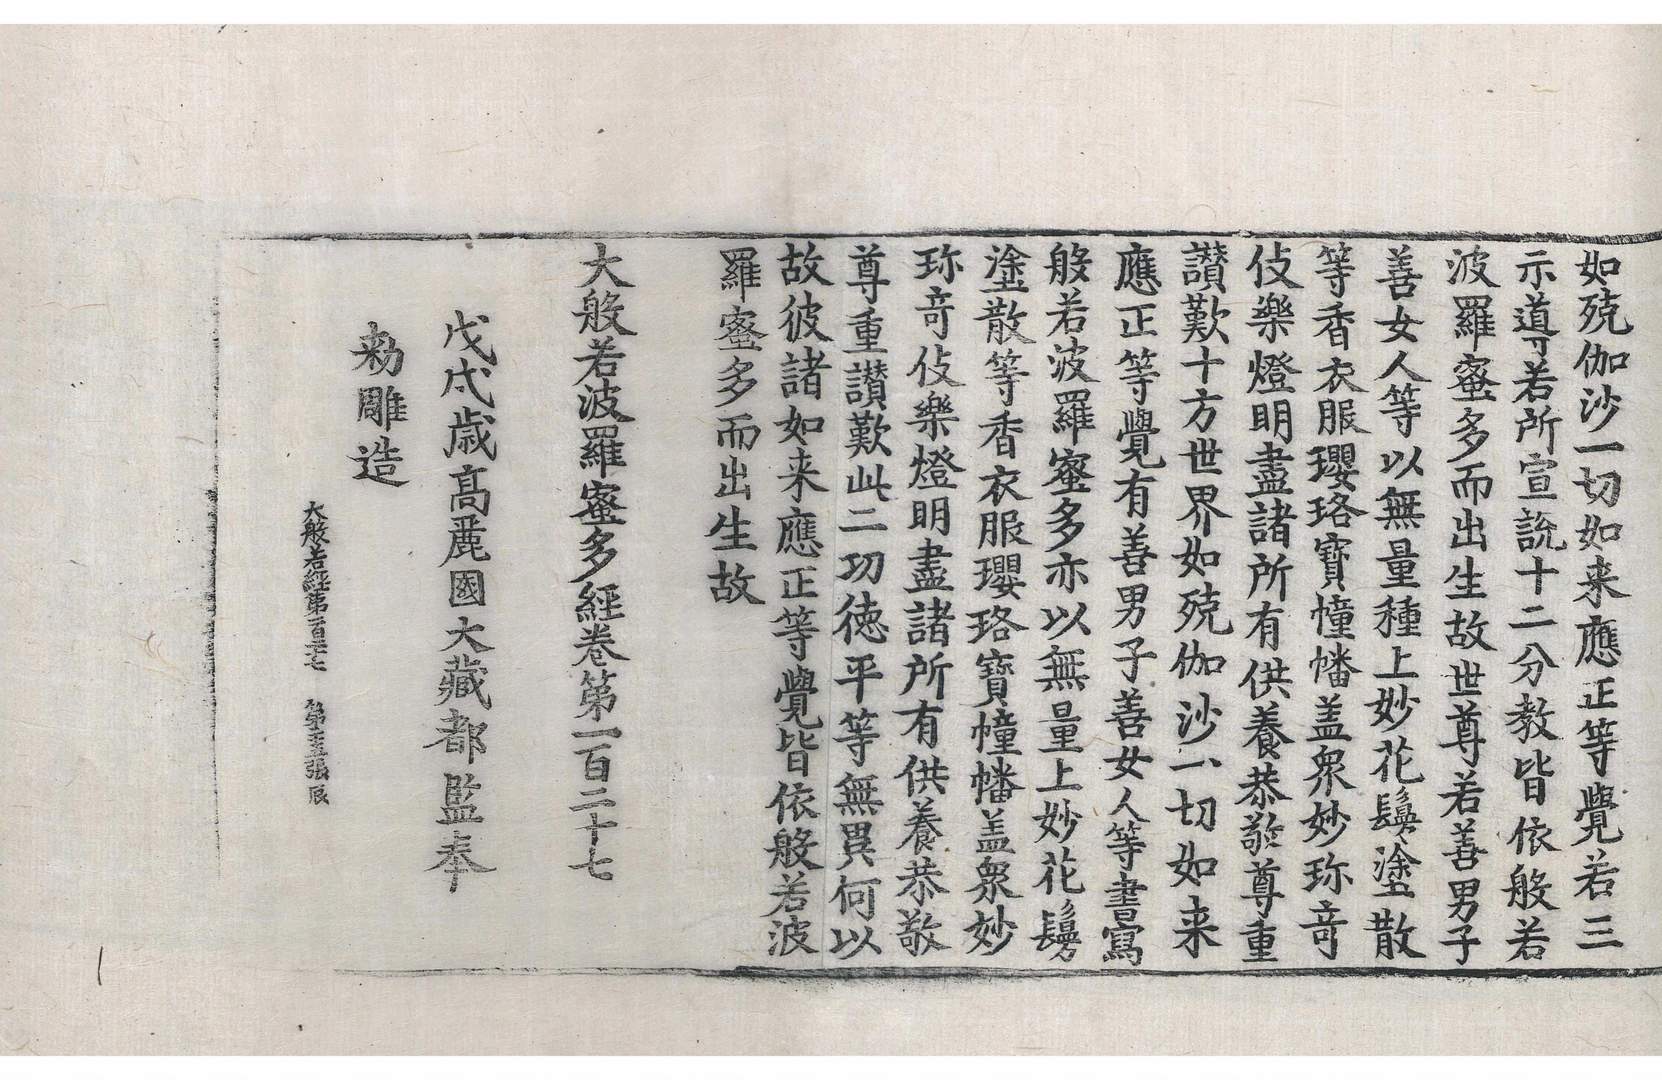 如殑伽沙一切如来應正等覺若三
示導若所宣說十二分教皆依般若
波羅蜜多而出生故世尊若善男子
善女人等以無量種上妙花鬘塗散
等香衣服瓔珞寶幢幡盖衆妙珎竒
伎樂燈明盡諸所有供養恭敬尊重
讃歎十方世界如殑伽沙一切如来
應正等覺有善男子善女人等書寫
般若波羅蜜多亦以無量上妙花鬘
塗散等香衣服瓔珞寶幢幡盖衆妙
珎竒伎樂燈明盡諸所有供養恭敬
尊重讃歎此二功徳平等無異何以
故彼諸如来應正等覺皆依般若波
羅蜜多而出生故
大般若波羅蜜多經卷第一百二十七
戊戌歳高麗國大藏都監奉
勑雕造
大般若經第一百二十七 第張辰